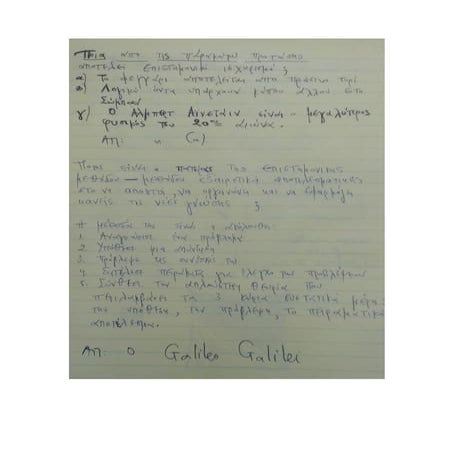 Ποια απο τις παρακατω προτασεις
αποτελει επιστημονικο ισχυρισμο ;
α) Το φεγγαρι αποτελειται απο πρασινο τυρι
β) Λογικα οντα υπαρχουν καπου αλλου στο
Συμπαν
γ) Ο Αλμπερτ Αινσταιν ειναι μεγαλυτερος
φυσικος του 20ου αιωνα.
ΑΠ: η (α)
Ποιος ειναι ο πατερας της επιστημονικης
μεθοδου — μεθοδου εξαιρετικα αποτελεσματικης
στο να αποκτα, να οργανωνει και να εφαρμοζει
κανεις τις νεες γνωσεις ;
Η μεθοδος της ειναι η ακολουθη:
1. Αναγνωρισε ενα προβλημα
2. Υποθεσε μια απαντηση
3. Προβλεψε τις συνεπειες του
4. Εκτελεσε πειραματα για ελεγχο των προβλεψεων
5. Συνθεσε την απλουστερη θεωρια που
περιλαμβανει τα 3 κυρια συστατικα μερη:
την υποθεση, την προβλεψη, το πειραματικο
αποτελεσμα.
ΑΠ: Ο Galileo Galilei